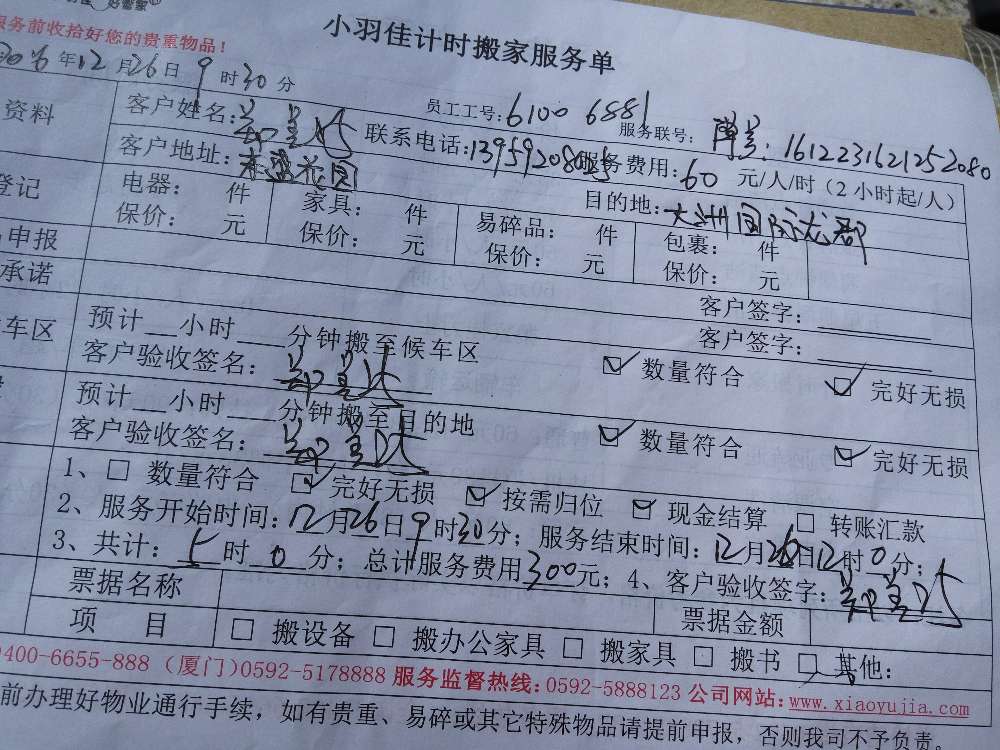 好管家
服务前收拾好您的贵重物品！
小羽佳计时搬家服务单
2016年12月26日9时30分
员工工号：6100 6881
服务联号：单号：1612231621252080
资料 客户姓名： 联系电话：13959208025 服务费用：60元/人/时（2小时起/人）
客户地址：花园 目的地：大洲国际龙郡
登记 电器： 件 家具： 件 易碎品： 件 包裹： 件
保价： 元 保价： 元 保价： 元 保价： 元
申报 客户签字：
承诺 客户签字：
车区 预计__小时___分钟搬至候车区 ☑ 数量符合 ☑ 完好无损
客户验收签名：
预计__小时___分钟搬至目的地 ☑ 数量符合 ☑ 完好无损
客户验收签名：
1、□ 数量符合 ☑ 完好无损 ☑ 按需归位 ☑ 现金结算 □ 转账汇款
2、服务开始时间：12月26日9时30分；服务结束时间：12月26日12时0分；
3、共计：5时0分；总计服务费用300元；4、客户验收签字：
票据名称 票据金额
项 目 □ 搬设备 □ 搬办公家具 □ 搬家具 □ 搬书 □ 其他：
0400-6655-888（厦门）0592-5178888 服务监督热线：0592-5888123 公司网站：www.xiaoyujia.com
前办理好物业通行手续，如有贵重、易碎或其它特殊物品请提前申报，否则我司不予负责。